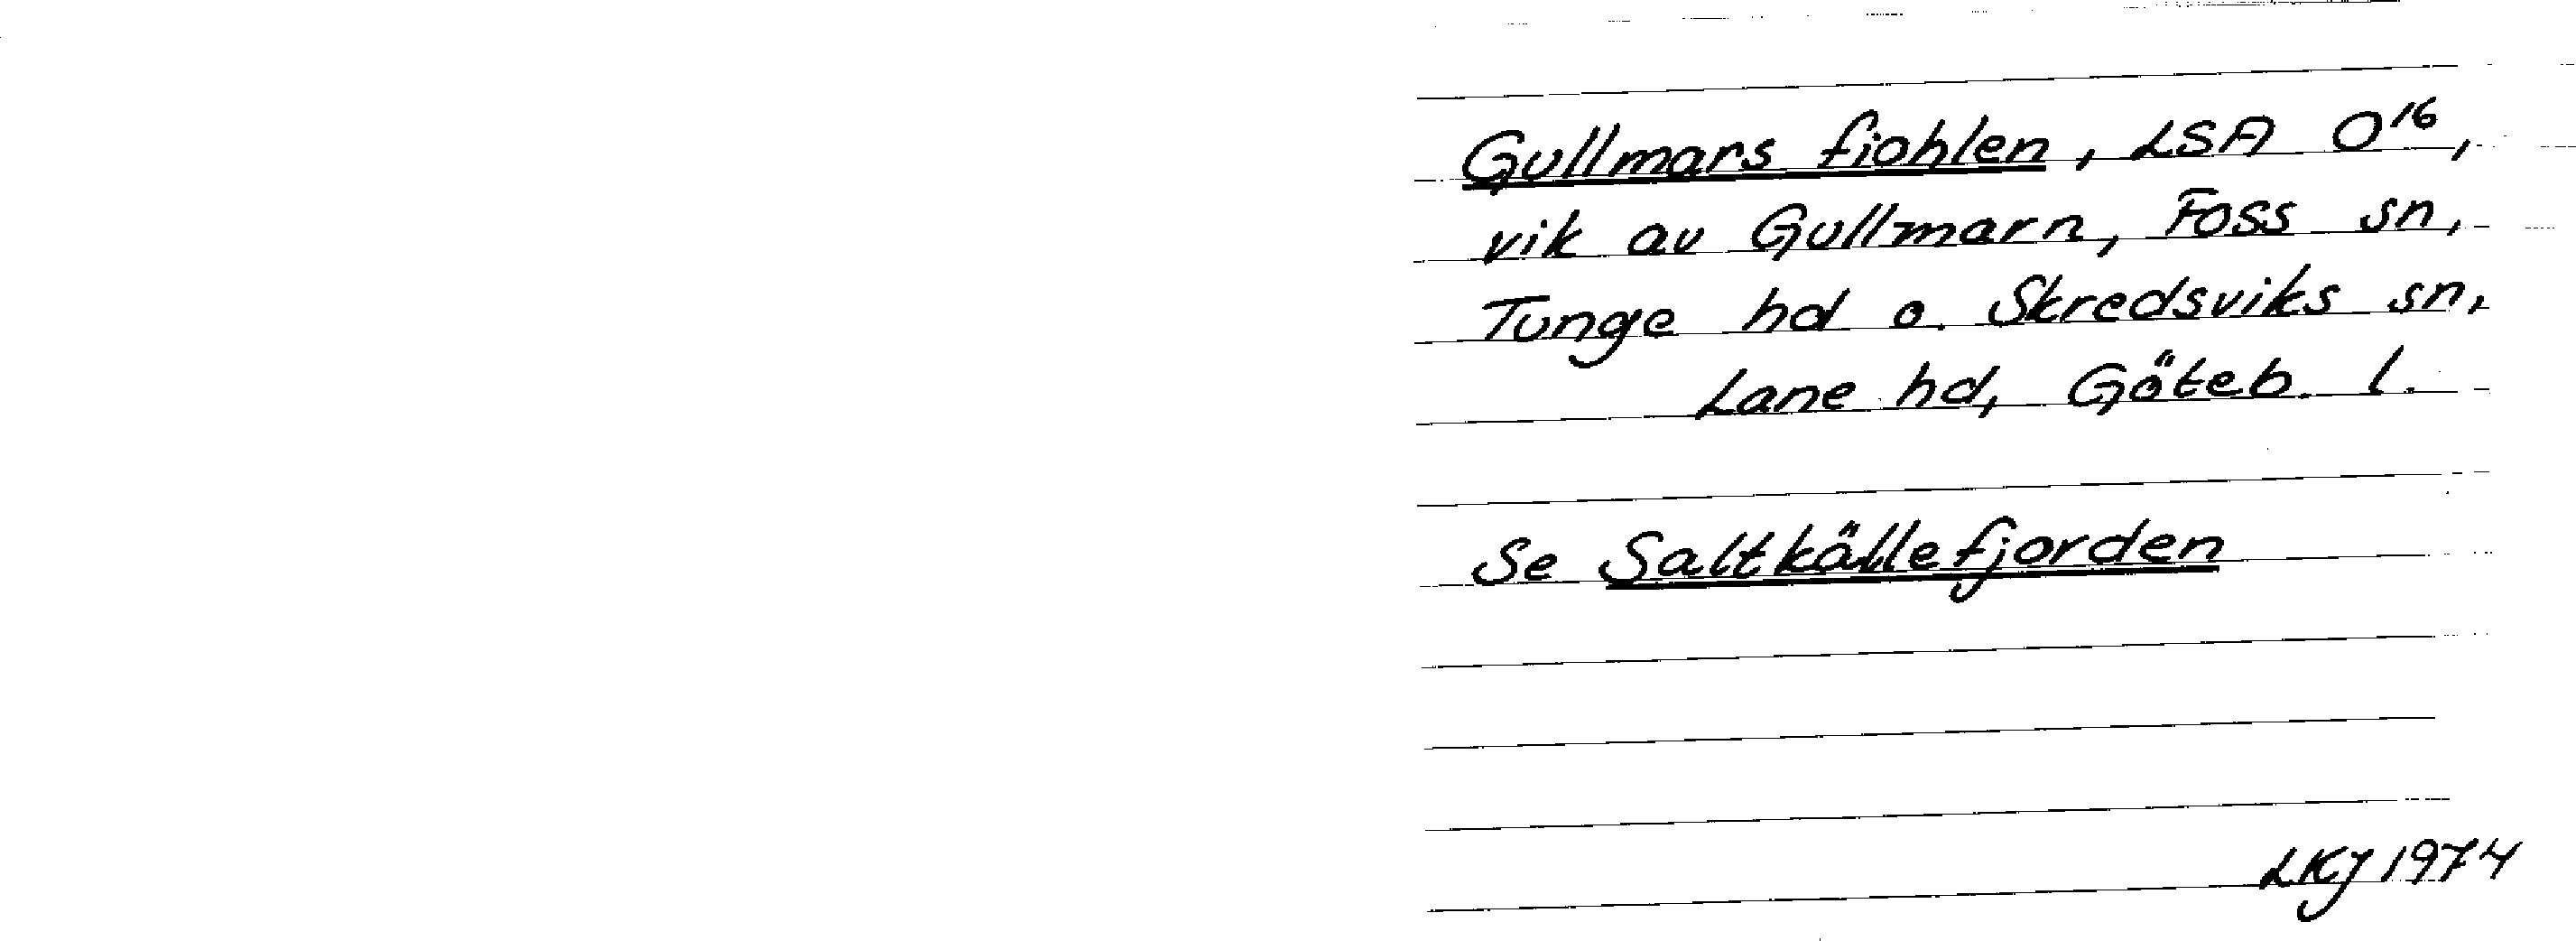 Gullmars fiohlen, LSA O16,
vik av Gullmarn, Foss sn,
Tunge hd o. Skredsviks sn,
Lane hd, Göteb. l.
Se Saltkällefjorden
LKJ 1974